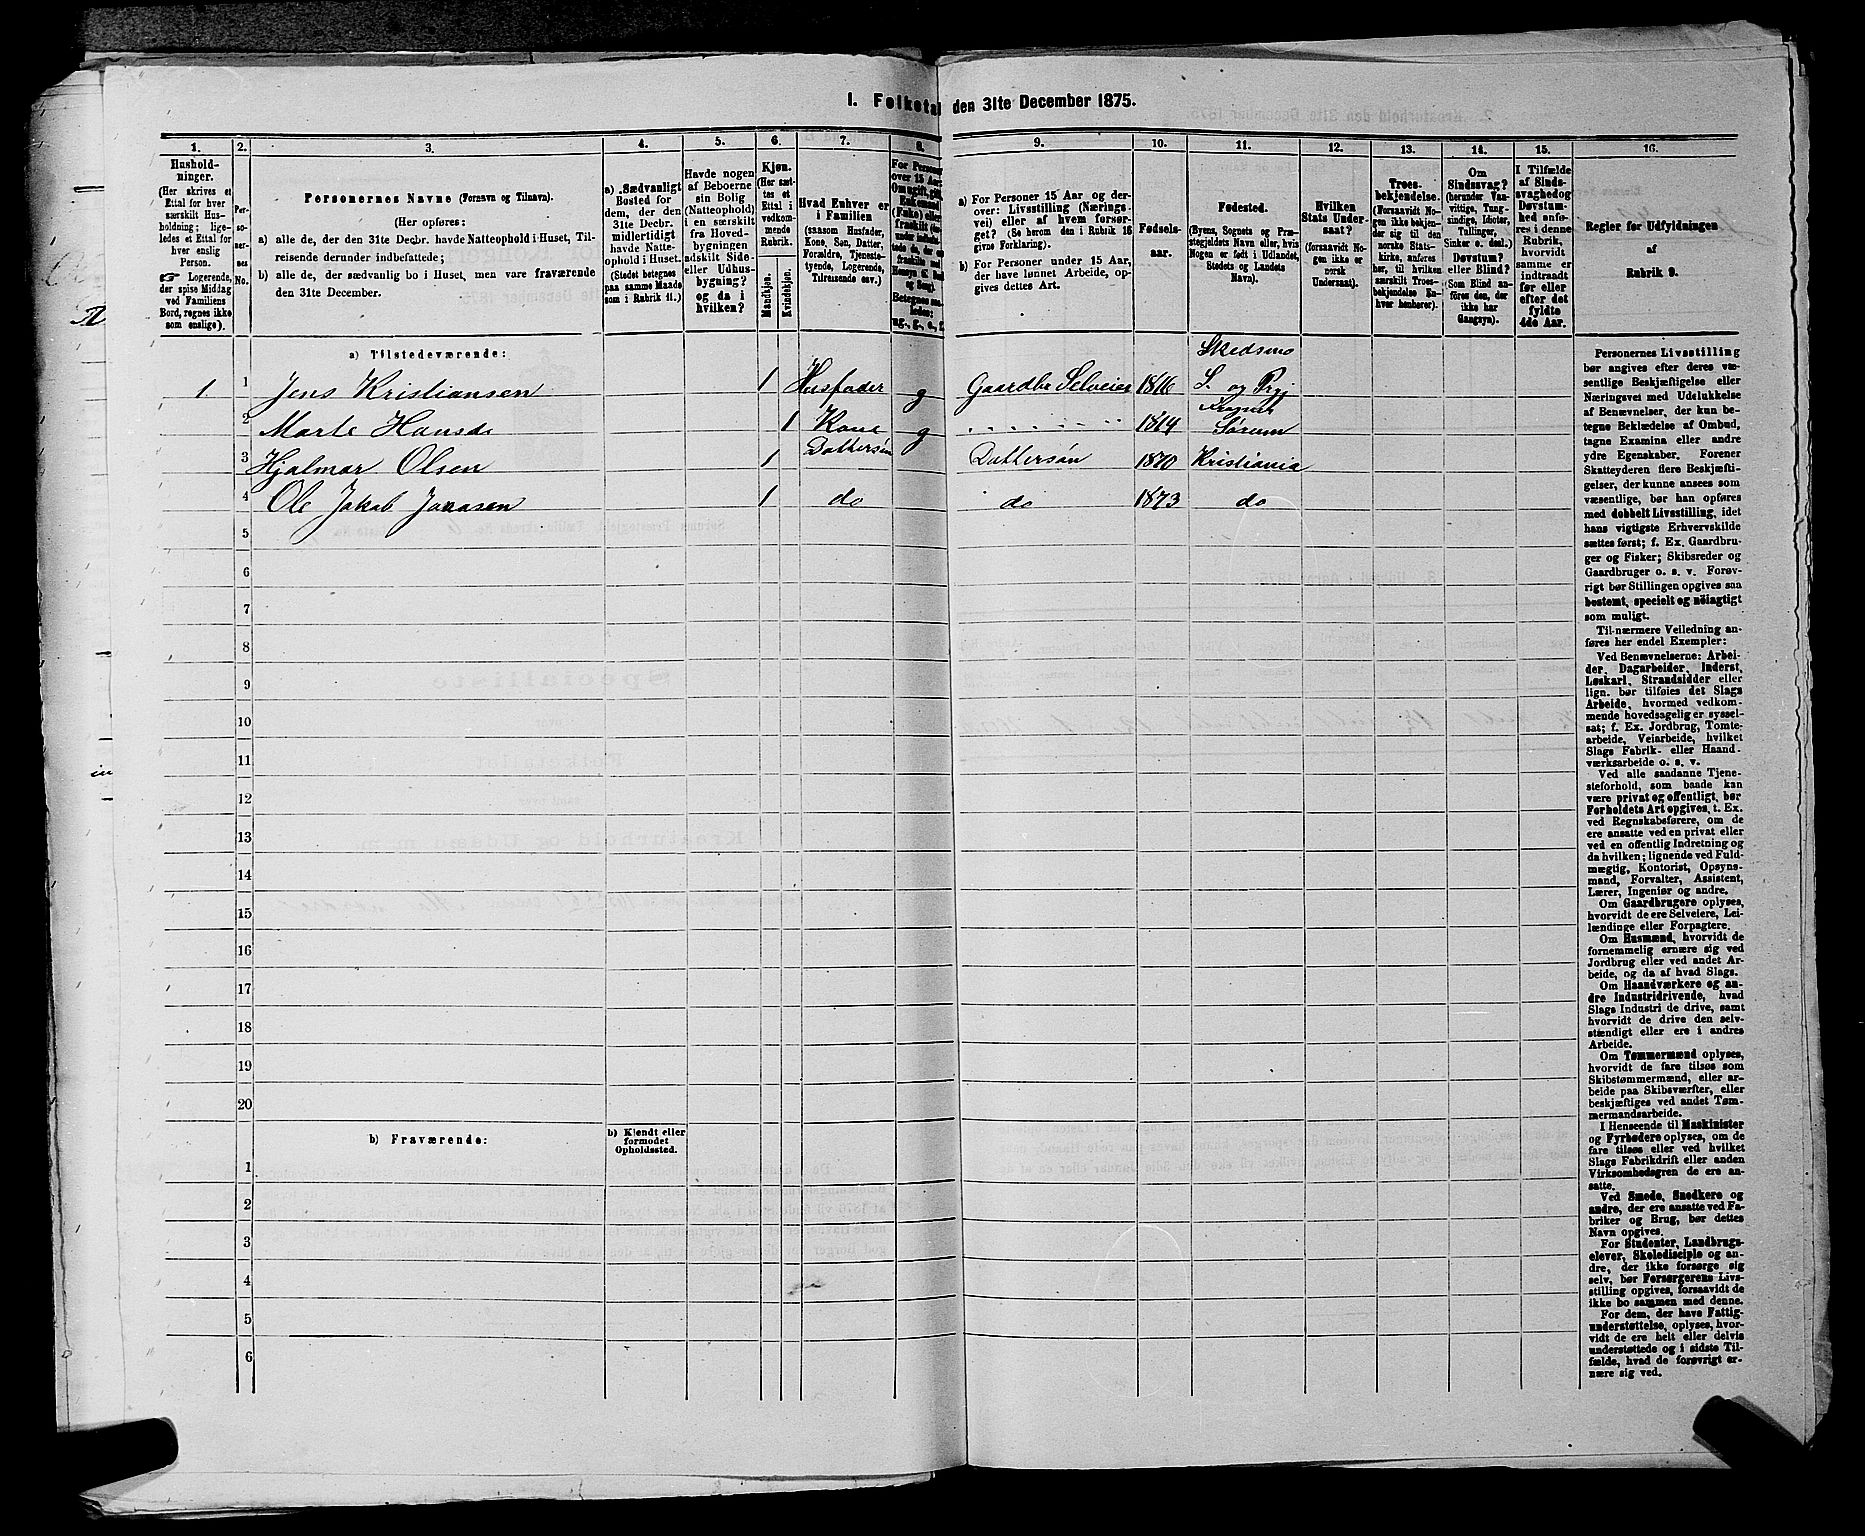 1. Folketal den 31te December 1875.
1. 2. 3. 4. 5. 6. 7. 8. 9. 10. 11. 12. 13. 14. 15. 16.
Hushold-
ninger.
(Her skrives et
Ettal for hver
særskilt Hus-
holdning; lige-
ledes et Ettal for
hver enslig
Person.
☞ Logerende,
der spise Middag
ved Familiens
Bord, regnes ikke
som enslige).
Per-
so-
ner-
nes
No.
Personernes Navne (Fornavn og Tilnavn).
(Her opføres:
a) alle de, der den 31te Decbr. havde Natteophold i Huset, Til-
reisende derunder indbefattede;
b) alle de, der sædvanlig bo i Huset, men vare fraværende
den 31te December.
a) Sædvanligt
Bosted for
dem, der den
31te Decbr.
midlertidigt
havde Natte-
ophold i Huset.
(Stedet betegnes
paa samme Maade
som i Rubrik 11.)
Havde nogen
af Beboerne
sin Bolig
(Natteophold)
i en særskilt
fra Hoved-
bygningen
adskilt Side-
eller Udhus-
bygning?
og da i
hvilken?
Kjøn.
(Her sæt-
tes et
Ettal i
vedkom-
mende
Rubrik.
Mandkjøn.
Kvindekjøn.
Hvad Enhver er
i Familien
(saasom Husfader,
Kone, Søn, Datter,
Forældre, Tjeneste-
tyende, Logerende,
Tilreisende osv.)
For Personer
over 15 Aar:
Om ugift, gift,
Enkemand
(Enke) eller
fraskilt
Betegnes saa-
ledes:
ug., g., e., f.
a) For Personer 15 Aar og der-
over: Livsstilling (Nærings-
vei) eller af hvem forsør-
get? (Se herom den i Rubrik 16
givne Forklaring).
b) For Personer under 15 Aar,
der have lønnet Arbeide, op-
gives dettes Art.
Fødsels-
aar.
Fødested.
(Byens, Sognets og Præ-
stegjeldets Navn eller, hvis
Nogen er født i Udlandet,
Stedets og Landets
Navn).
Hvilken
Stats Under-
saat?
(forsaavidt No-
gen ikke er
norsk
Undersaat).
Troes-
bekjendelse.
(Forsaavidt No-
gen ikke bekjen-
der sig til den
norske Stats-
kirke, anføres
her, til hvilken
særskilt Troes-
bekjendelse En-
hver henhører).
Om
Sindssvag?
(herunder Van-
vittige, Tung-
sindige, Idioter,
Tullinger,
Sinker o. desl.)
Døvstum?
eller Blind?
(Som Blind an-
føres den, der
ikke har
Gangsyn).
I Tilfælde
af Sinds-
svaghed og
Døvstum-
hed anfø-
res i denne
Rubrik,
hvorvidt
samme er
indtraadt
før eller
efter det
fyldte
4de Aar.
Regler for Udfyldningen
af
Rubrik 9.
a) Tilstedeværende:
Skedsmo
1 1 Jens Kristiansen 1 Husfader g Gaardbr Selveier 1816 S. og Prgj
2 Marte Hansdr 1 Kone g 1814 Sørum
3 Hjalmar Olsen 1 Dattersøn Dattersøn 1870 Kristiania
4 Ole Jakob Jonasen 1 do do 1873 do
5
6
7
8
9
10
11
12
13
14
15
16
17
18
19
20
b) Fraværende:
b) Kjendt eller
formodet
Opholdssted.
1
2
3
4
5
6
Personernes Livsstilling
bør angives efter deres væ-
sentlige Beskjæftigelse eller
Næringsvei med Udelukkelse
af Benævnelser, der kun be-
tegne Beklædelse af Ombud,
tagne Examina eller andre
ydre Egenskaber. Forener
Skatteyderen flere Beskjæfti-
gelser, der kunne ansees som
væsentlige, bør han opføres
med dobbelt Livsstilling, idet
hans vigtigste Erhvervskilde
sættes først; f. Ex. Gaardbru-
ger og Fisker; Skibsreder og
Gaardbruger o. s. v. Forøv-
rigt bør Stillingen opgives saa
bestemt, specielt og nøiagtigt
som muligt.
Til nærmere Veiledning an-
føres her endel Exempler:
Ved Benævnelserne: Arbei-
der, Dagarbeider, Inderst,
Løskarl, Strandsidder eller
lign. bør tilføies det Slags
Arbeide, hvormed vedkom-
mende hovedsagelig er syssel-
sat; f. Ex. Jordbrug, Tomte-
arbeide, Veiarbeide, hvilket
Slags Fabrik- eller Haand-
værksarbeide o. s. v.
Ved alle saadanne Tjene-
steforhold, som baade kan
være privat og offentligt, bør
Forholdets Art opgives, t. Ex.
ved Regnskabsførere, om de
ere ansatte ved en privat eller
ved en offentlig Indretning og
da hvilken; lignende ved Fuld-
mægtig, Kontorist, Opsyns-
mand, Forvalter, Assistent,
Lærer, Ingeniør og andre.
Om Gaardbrugere oplyses,
hvorvidt de ere Selveiere, Lei-
lændinge eller Forpagtere.
Om Husmænd, hvorvidt de
fornemmelig ernære sig ved
Jordbrug eller ved andet Ar-
beide, og da af hvad Slags.
Om Haandværkere og an-
dre Industridrivende, hvad
Slags Industri de drive, samt
hvorvidt de drive den selv-
stændigt eller ere i andres
Arbeide.
Om Tømmermænd oplyses,
hvorvidt de fare tilsøs som
Skibstømmermænd, eller ar-
beide paa Skibsværfter, eller
beskjæftiges ved andet Tøm-
mermandsarbeide.
I Henseende til Maskinister
og Fyrbødere oplyses, om de
fare tilsøs eller ved hvilket
Slags Fabrikdrift eller anden
Virksomhedsgren de ere an-
satte.
Ved Smede, Snedkere og
andre, der ere ansatte ved Fa-
briker og Brug, bør dettes
Navn opgives.
For Studenter, Landbrugs-
elever, Skoledisciple og an-
dre, der ikke forsørge sig
selv, bør Forsørgerens Livs-
stilling opgives, forsaavidt de
ikke bo sammen med denne.
For dem, der have Fattig-
understøttelse, oplyses, hvor-
vidt de ere helt eller delvis
understøttede og i sidste Til-
fælde, hvad de forøvrigt er-
nære sig ved.